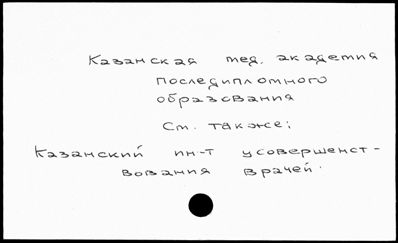 Казанская мед. академия
последипломного
образования
См. также:
Казанский ин-т усовершенст-
вования врачей.